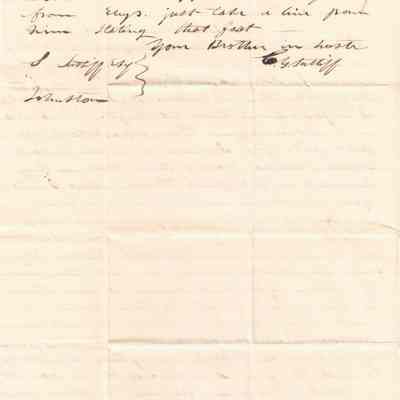 from Elys. just take a line from
him stating that fact
Your Brother in haste
G Sutliff
S Sutliff Esq
Johnston